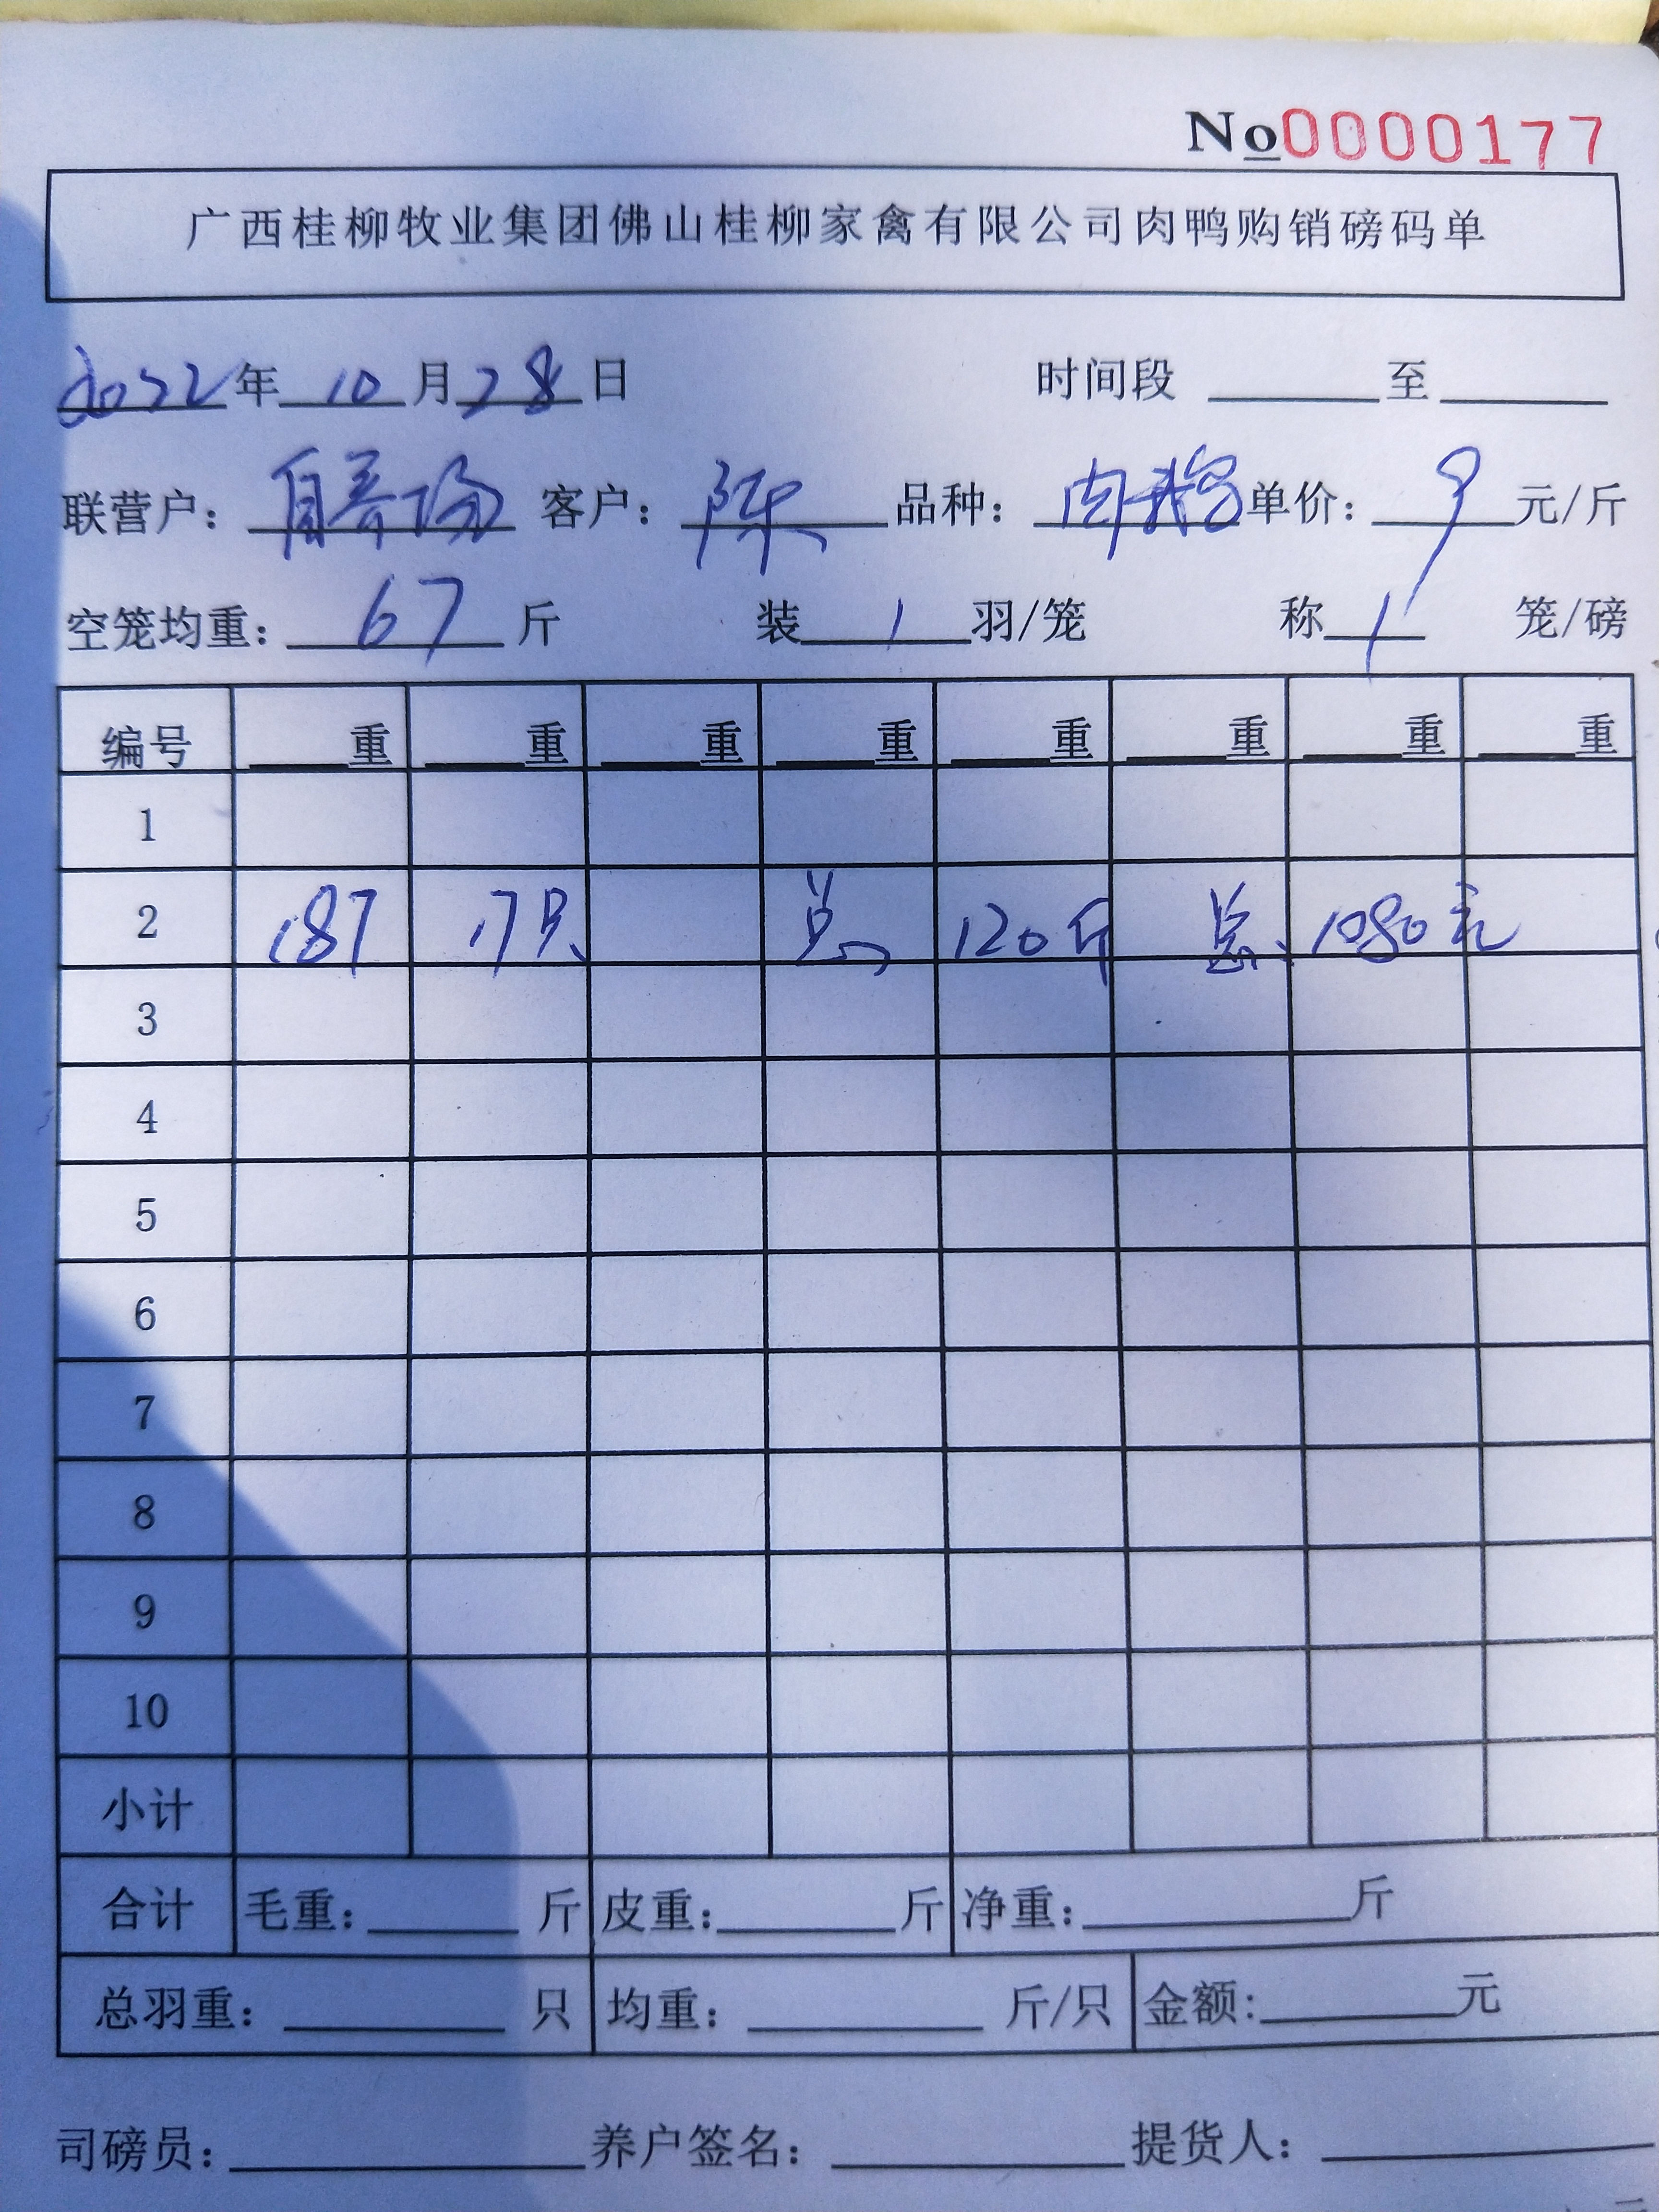 No 0000177
广西桂柳牧业集团佛山桂柳家禽有限公司肉鸭购销磅码单
2022年 10 月 28 日 时间段 至
联营户： 自养场 客户： 陈 品种： 肉鹅 单价： 9 元/斤
空笼均重： 67 斤 装 1 羽/笼 称 1 笼/磅
编号 重 重 重 重 重 重 重 重
1
2 187 17只 总 120斤 总 1080元
3
4
5
6
7
8
9
10
小计
合计 毛重： 斤 皮重： 斤 净重： 斤
总羽重： 只 均重： 斤/只 金额： 元
司磅员： 养户签名： 提货人：